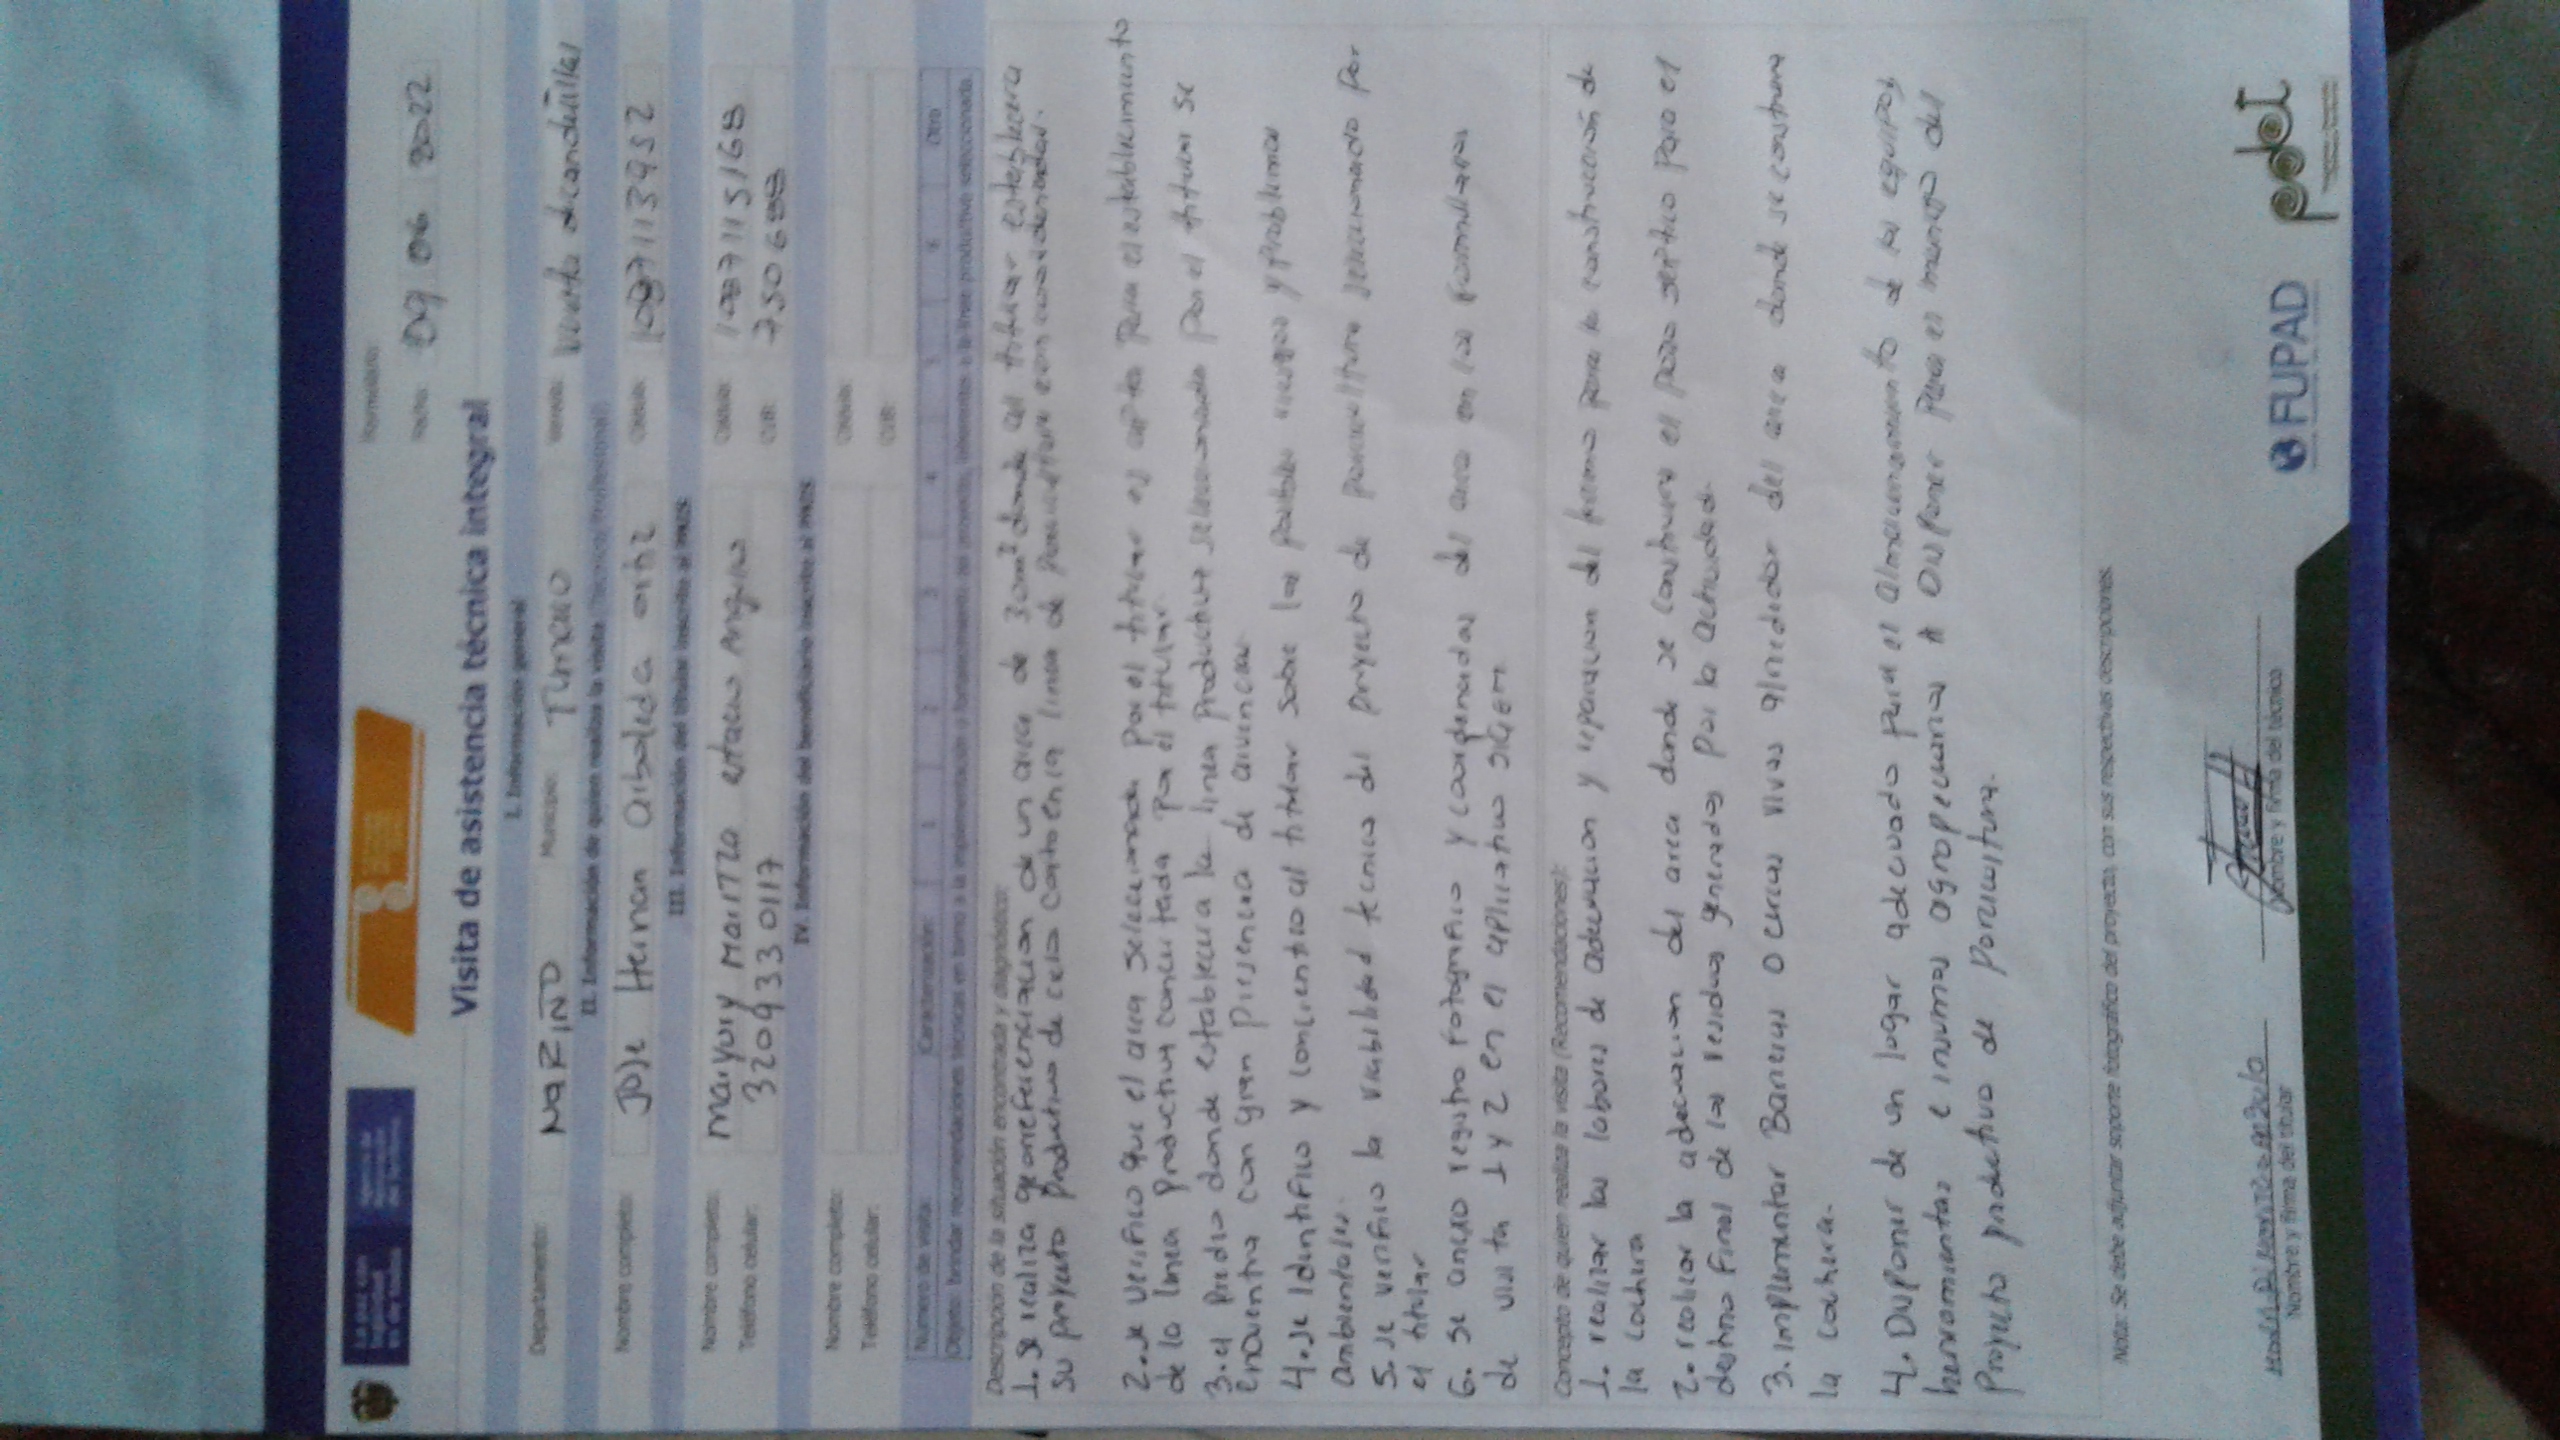 Formulario:
Fecha: 09 06 2022
Visita de asistencia técnica integral
I. Información general
Departamento: NARIÑO Municipio: Tumaco Vereda:
II. Información de quien realiza la visita (Técnico/Profesional)
Nombre completo: Jose Hernan Arboleda ortiz Cédula:
III. Información del titular inscrito al PNIS
Nombre completo: Maryury Maritza estacio Angulo Cédula:
Teléfono celular: 3209330117 CUB:
IV. Información del beneficiario inscrito al PNIS
Nombre completo: Cédula:
Teléfono celular: CUB:
Número de visita: Caracterización: 1 2 3 4 5 6 Otro
Objeto: brindar recomendaciones técnicas en torno a la implementación y fortalecimiento del proyecto, inherentes a la línea productiva seleccionada.
Descripción de la situación encontrada y diagnóstico:
1. Se realiza georeferenciacion de un area de 30m² donde el titular establecera
su proyecto productivo de ciclo corto en la linea de porcicultura
2. se verifico que el area seleccionada por el titular es apto para el establecimiento
de la linea productiva concertada por el titular
3. el predio donde establecera la linea productiva seleccionada por el titular se
encuentra con gran presencia de
4. se identifico y concientico al titular sobre los posibles riesgos y problemas
ambientales.
5. se verifico la viabilidad tecnica del proyecto de porcicultura seleccionado por
el titular
6. se anexo registro fotografico y coordenadas del area en los formularios
de visita 1 y 2 en el aplicativo SIGEM
Concepto de quien realiza la visita (Recomendaciones):
1. realizar las labores de adecuacion y reparacion del terreno para la construccion de
la cochera
2. realizar la adecuacion del area donde se construira el pozo septico para el
destino final de los residuos generados por la actividad.
3. implementar Barreras o cercas vivas alrededor del area donde se construira
la cochera.
4. Disponer de un lugar adecuado para el almacenamiento de los equipos,
herramientas e insumos agropecuarios a Disponer para el manejo del
Proyecto productivo de Porcicultura.
Nota: Se debe adjuntar soporte fotográfico del proyecto, con sus respectivas descripciones.
Nombre y firma del titular
Nombre y firma del técnico
FUPAD
pdet